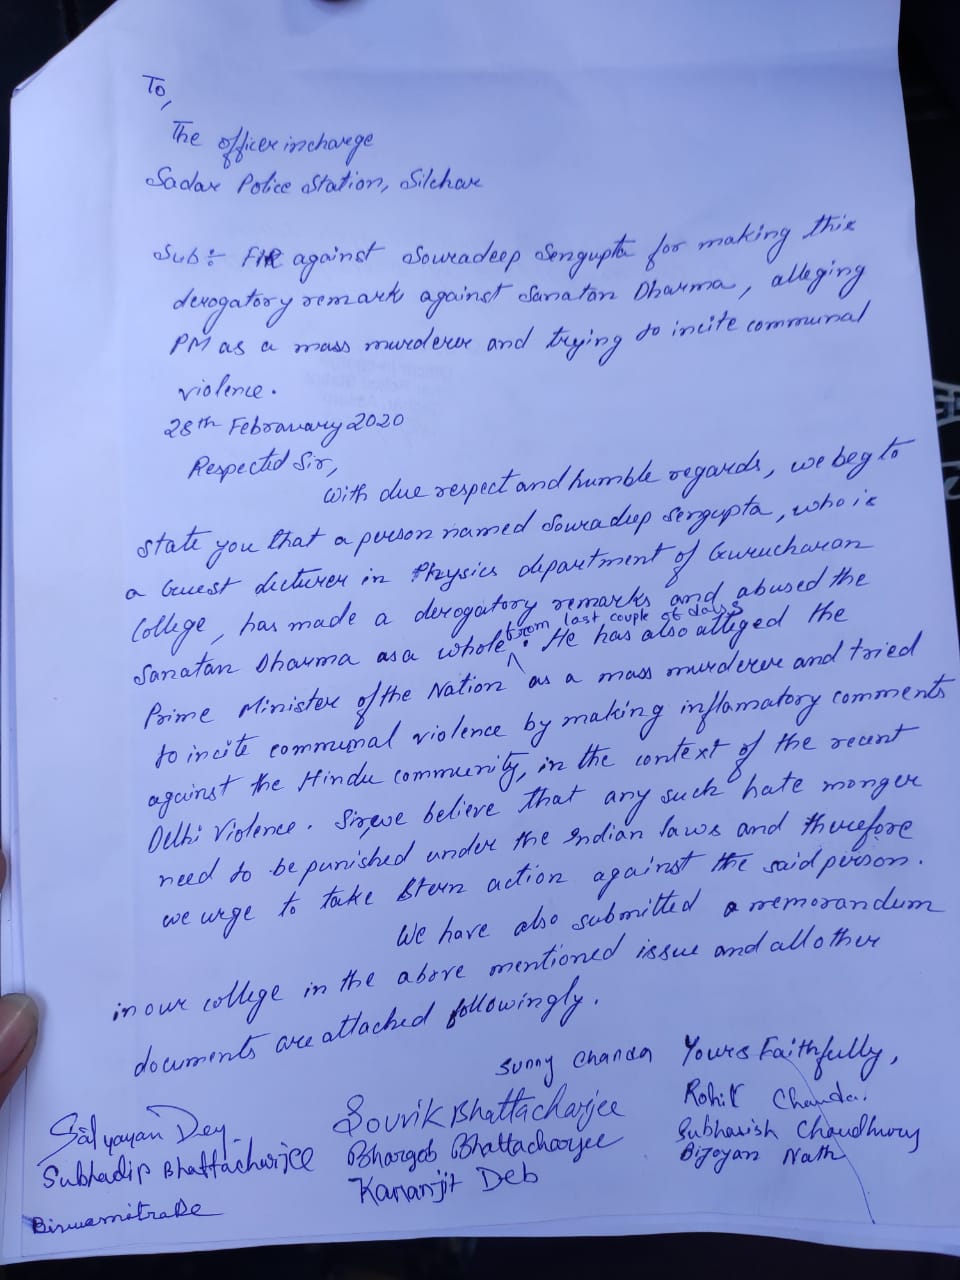 To,
The officer incharge
Sadar Police Station, Silchar
Sub:- FIR against Souradeep Sengupta for making this
derogatory remark against Sanatan Dharma, alleging
PM as a mass murderer and trying to incite communal
violence.
28th Febrauary 2020
Respected Sir,
With due respect and humble regards, we beg to
state you that a person named Souradeep Sengupta, who is
a Guest Lecturer in Physics department of Gurucharan
College, has made a derogatory remarks and abused the
Sanatan Dharma as a whole from last couple of days. He has also alleged the
Prime Minister of the Nation as a mass murderer and tried
to incite communal violence by making inflamatory comments
against the Hindu community, in the context of the recent
Delhi Violence. Sir, we believe that any such hate monger
need to be punished under the Indian laws and therefore
we urge to take stern action against the said person.
We have also submitted a memorandum
in our college in the above mentioned issue and all other
documents are attached followingly.
Sunny Chanda Yours Faithfully,
Satyayan Dey Sourik Bhattacharjee Rohit Chanda.
Subhadip Bhattacharjee Bhargab Bhattacharjee Subhasish Choudhury
Biswamitra De Kananjit Deb Bijoyan Nath